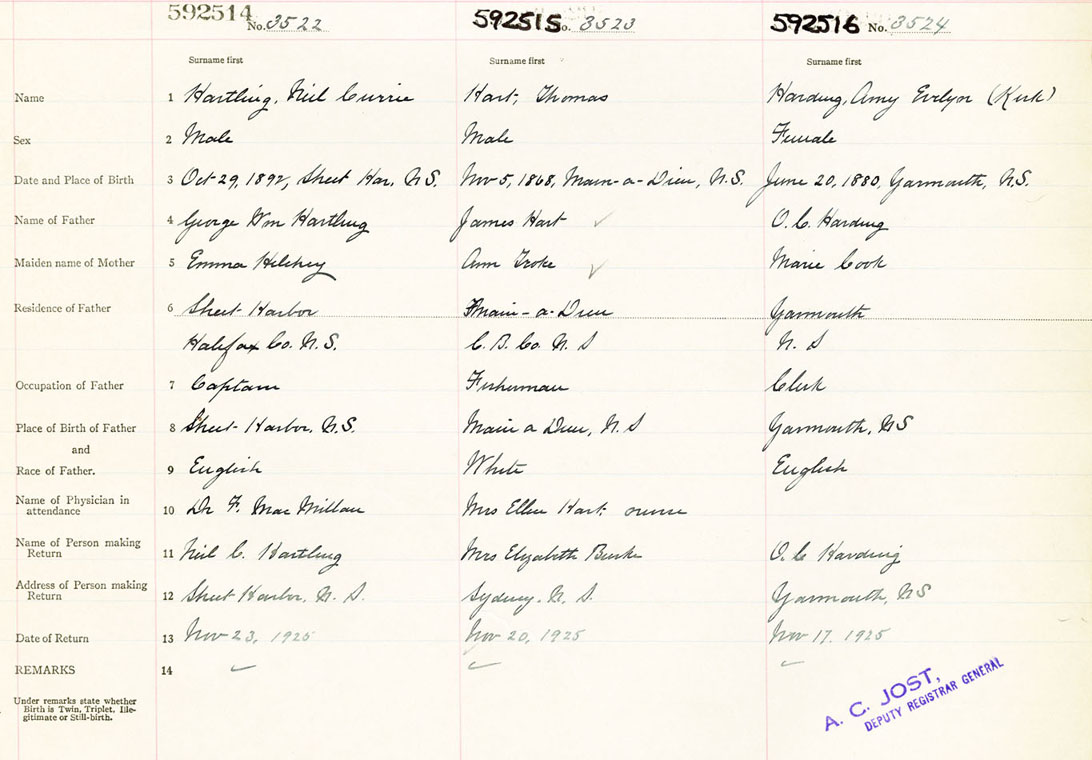 592514 No. 3522 592515 No. 3523 592516 No. 3524
Surname first Surname first Surname first
Name 1 Hartling, Neil Currie Hart, Thomas Harding, Amy Evelyn (Kirk)
Sex 2 Male Male Female
Date and Place of Birth 3 Oct 29, 1892, Sheet Har. N.S. Nov 5, 1868, Main-a-Dieu, N.S. June 20, 1880, Yarmouth, N.S.
Name of Father 4 George Wm Hartling James Hart O. C. Harding
Maiden name of Mother 5 Emma Hilchey Ann Troke Marie Cook
Residence of Father 6 Sheet Harbor Main-a-Dieu Yarmouth
Halifax Co. N.S. C. B. Co. N. S N. S
Occupation of Father 7 Captain Fisherman Clerk
Place of Birth of Father 8 Sheet Harbor, N.S. Main a Dieu, N. S Yarmouth, NS
and
Race of Father. 9 English White English
Name of Physician in
attendance 10 Dr F. Mac Millan Mrs Ellen Hart nurse
Name of Person making
Return 11 Neil C. Hartling Mrs Elizabeth Burke O. C Harding
Address of Person making
Return 12 Sheet Harbor, N. S. Sydney, N. S. Yarmouth, NS
Date of Return 13 Nov 23, 1925 Nov 20, 1925 Nov 17. 1925
REMARKS 14
Under remarks state whether
Birth is Twin, Triplet, Ille-
gitimate or Still-birth.
A. C. JOST,
DEPUTY REGISTRAR GENERAL